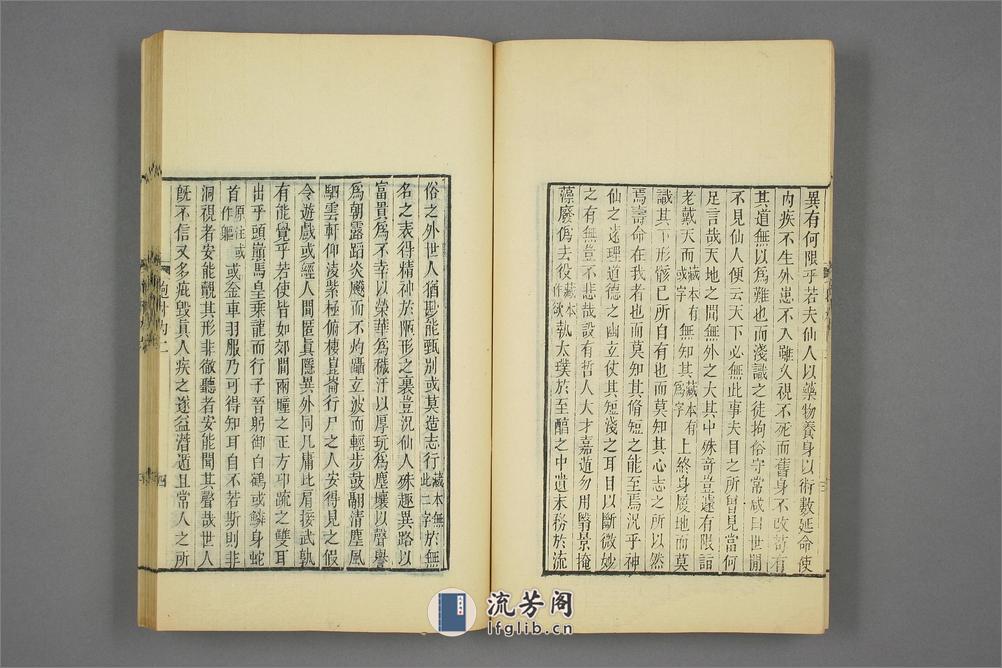 異有何限乎若夫仙人以藥物養身以術數延命使
内疾不生外患不入雖久視不死而舊身不改苟有
其道無以為難也而淺識之徒拘俗守常咸曰世間
不見仙人便云天下必無此事夫目之所曾見當何
足言哉天地之間無外之大其中殊奇豈遽有限詣
老戴天而藏本有或字無知其藏本有為字上終身履地而莫
識其下形骸己所自有也而莫知其心志之所以然
焉壽命在我者也而莫知其脩短之能至焉況乎神
仙之遠理道德之幽玄仗其短淺之耳目以斷微妙
之有無豈不悲哉設有哲人大才嘉遁勿用翳景掩
藻廢偽去役藏本作欲執太璞於至醇之中遺末務於流
俗之外世人猶尠能甄别或莫造志行藏本無此二字於無
名之表得精神於陋形之裏豈況仙人殊趣異路以
富貴為不幸以榮華為穢汙以厚玩為塵壤以聲譽
為朝露蹈炎飈而不灼躡玄波而輕步鼓翮清塵風
駟雲軒仰凌紫極俯棲崑崙行尸之人安得見之假
令遊戲或經人間匿真隱異外同凡庸比肩接武孰
有能覺乎若使皆如郊間兩瞳之正方卭疏之雙耳
出乎頭巔馬皇乘龍而行子晉躬御白鶴或鱗身蛇
首原注或作軀或金車羽服乃可得知耳自不若斯則非
洞視者安能覿其形非徹聽者安能聞其聲哉世人
既不信又多疵毁真人疾之遂益潛遁且常人之所
四
流芳阁
lfglib.cn